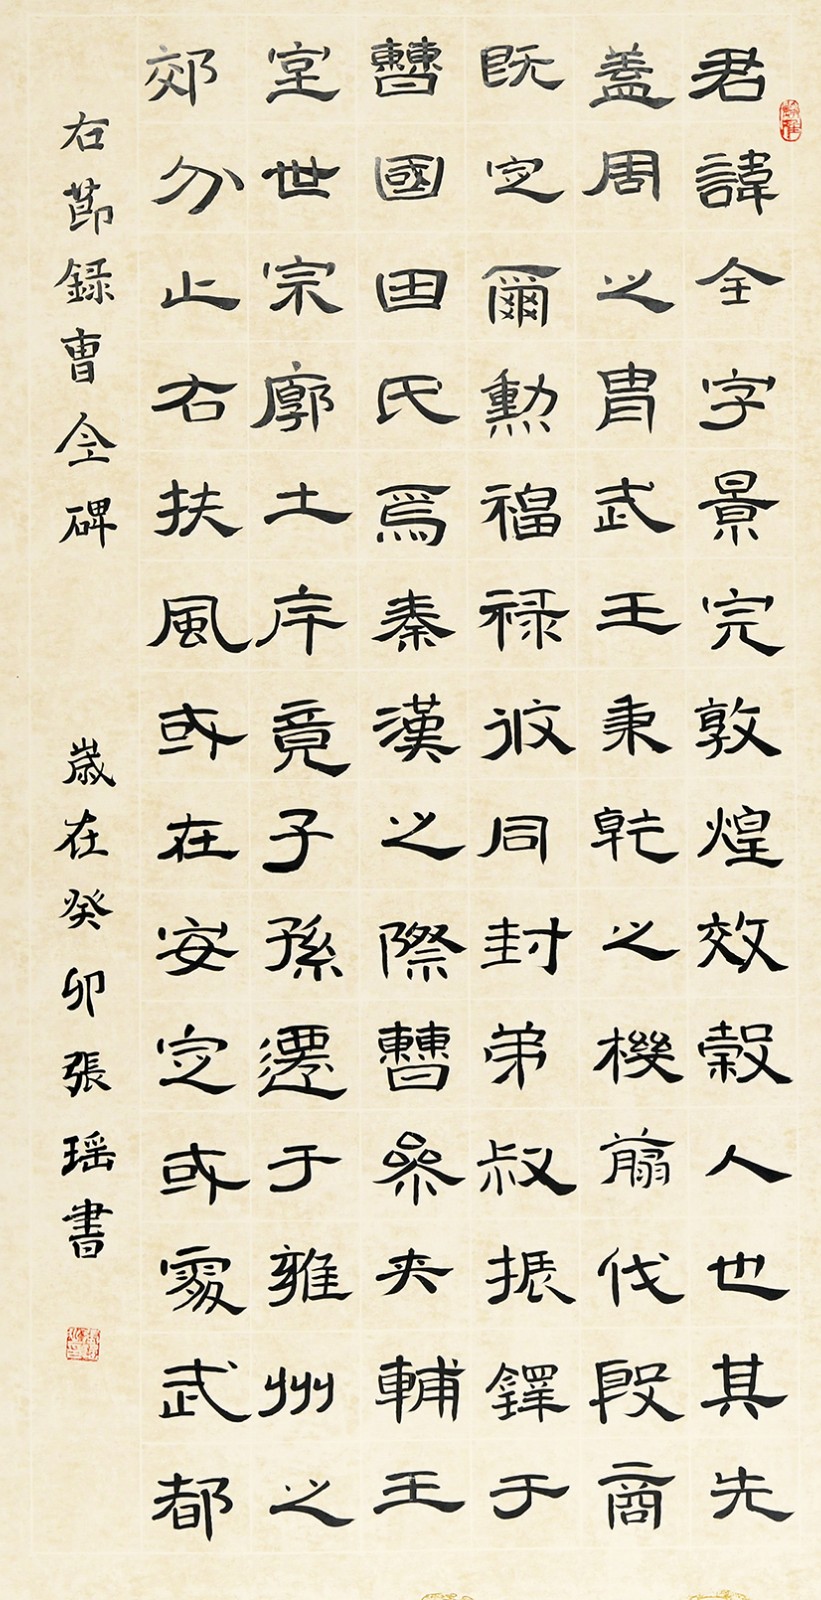 君諱全字景完敦煌效穀人也其先
蓋周之胄武王秉乾之機翦伐殷商
既定爾勲福禄攸同封弟叔振鐸于
曹國因氏焉秦漢之際曹參夾輔王
室世宗廓土斥竟子孫遷于雍州之
郊分止右扶風或在安定或處武都
右節録曹全碑
歳在癸卯張瑶書